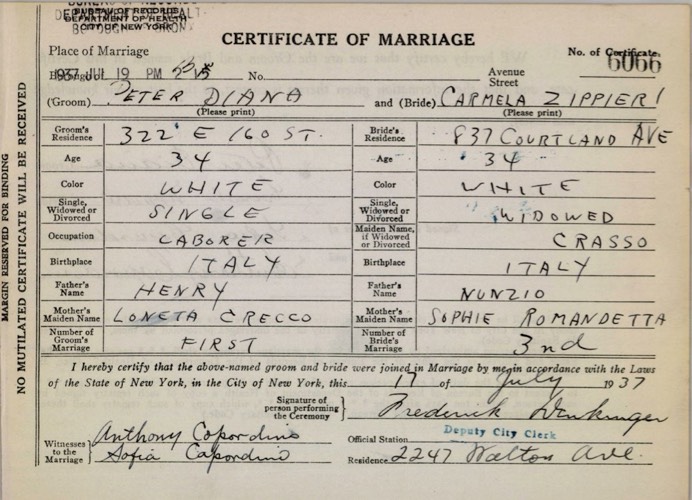 BUREAU OF RECORDS
DEPARTMENT OF HEALTH
CITY OF NEW YORK
CERTIFICATE OF MARRIAGE
Place of Marriage
No. of Certificate
6066
1937 JUL 19 PM
No.
Avenue
Street
(Groom) PETER DIANA and (Bride) CARMELA ZIPPIERI
(Please print) (Please print)
Groom's Residence 322 E 160 ST. Bride's Residence 837 COURTLAND AVE
Age 34 Age 34
Color WHITE Color WHITE
Single, Widowed or Divorced SINGLE Single, Widowed or Divorced WIDOWED
Occupation LABORER Maiden Name, if Widowed or Divorced CRASSO
Birthplace ITALY Birthplace ITALY
Father's Name HENRY Father's Name NUNZIO
Mother's Maiden Name LONETA CRECCO Mother's Maiden Name SOPHIE ROMANDETTA
Number of Groom's Marriage FIRST Number of Bride's Marriage 3nd
I hereby certify that the above-named groom and bride were joined in Marriage by me in accordance with the Laws
of the State of New York, in the City of New York, this 17 of July 1937
Signature of person performing the Ceremony Frederick
Witnesses to the Marriage Anthony Copordino
Sofia Capordino
Official Station Deputy City Clerk
Residence 2247 Walton Ave.
MARGIN RESERVED FOR BINDING
NO MUTILATED CERTIFICATE WILL BE RECEIVED